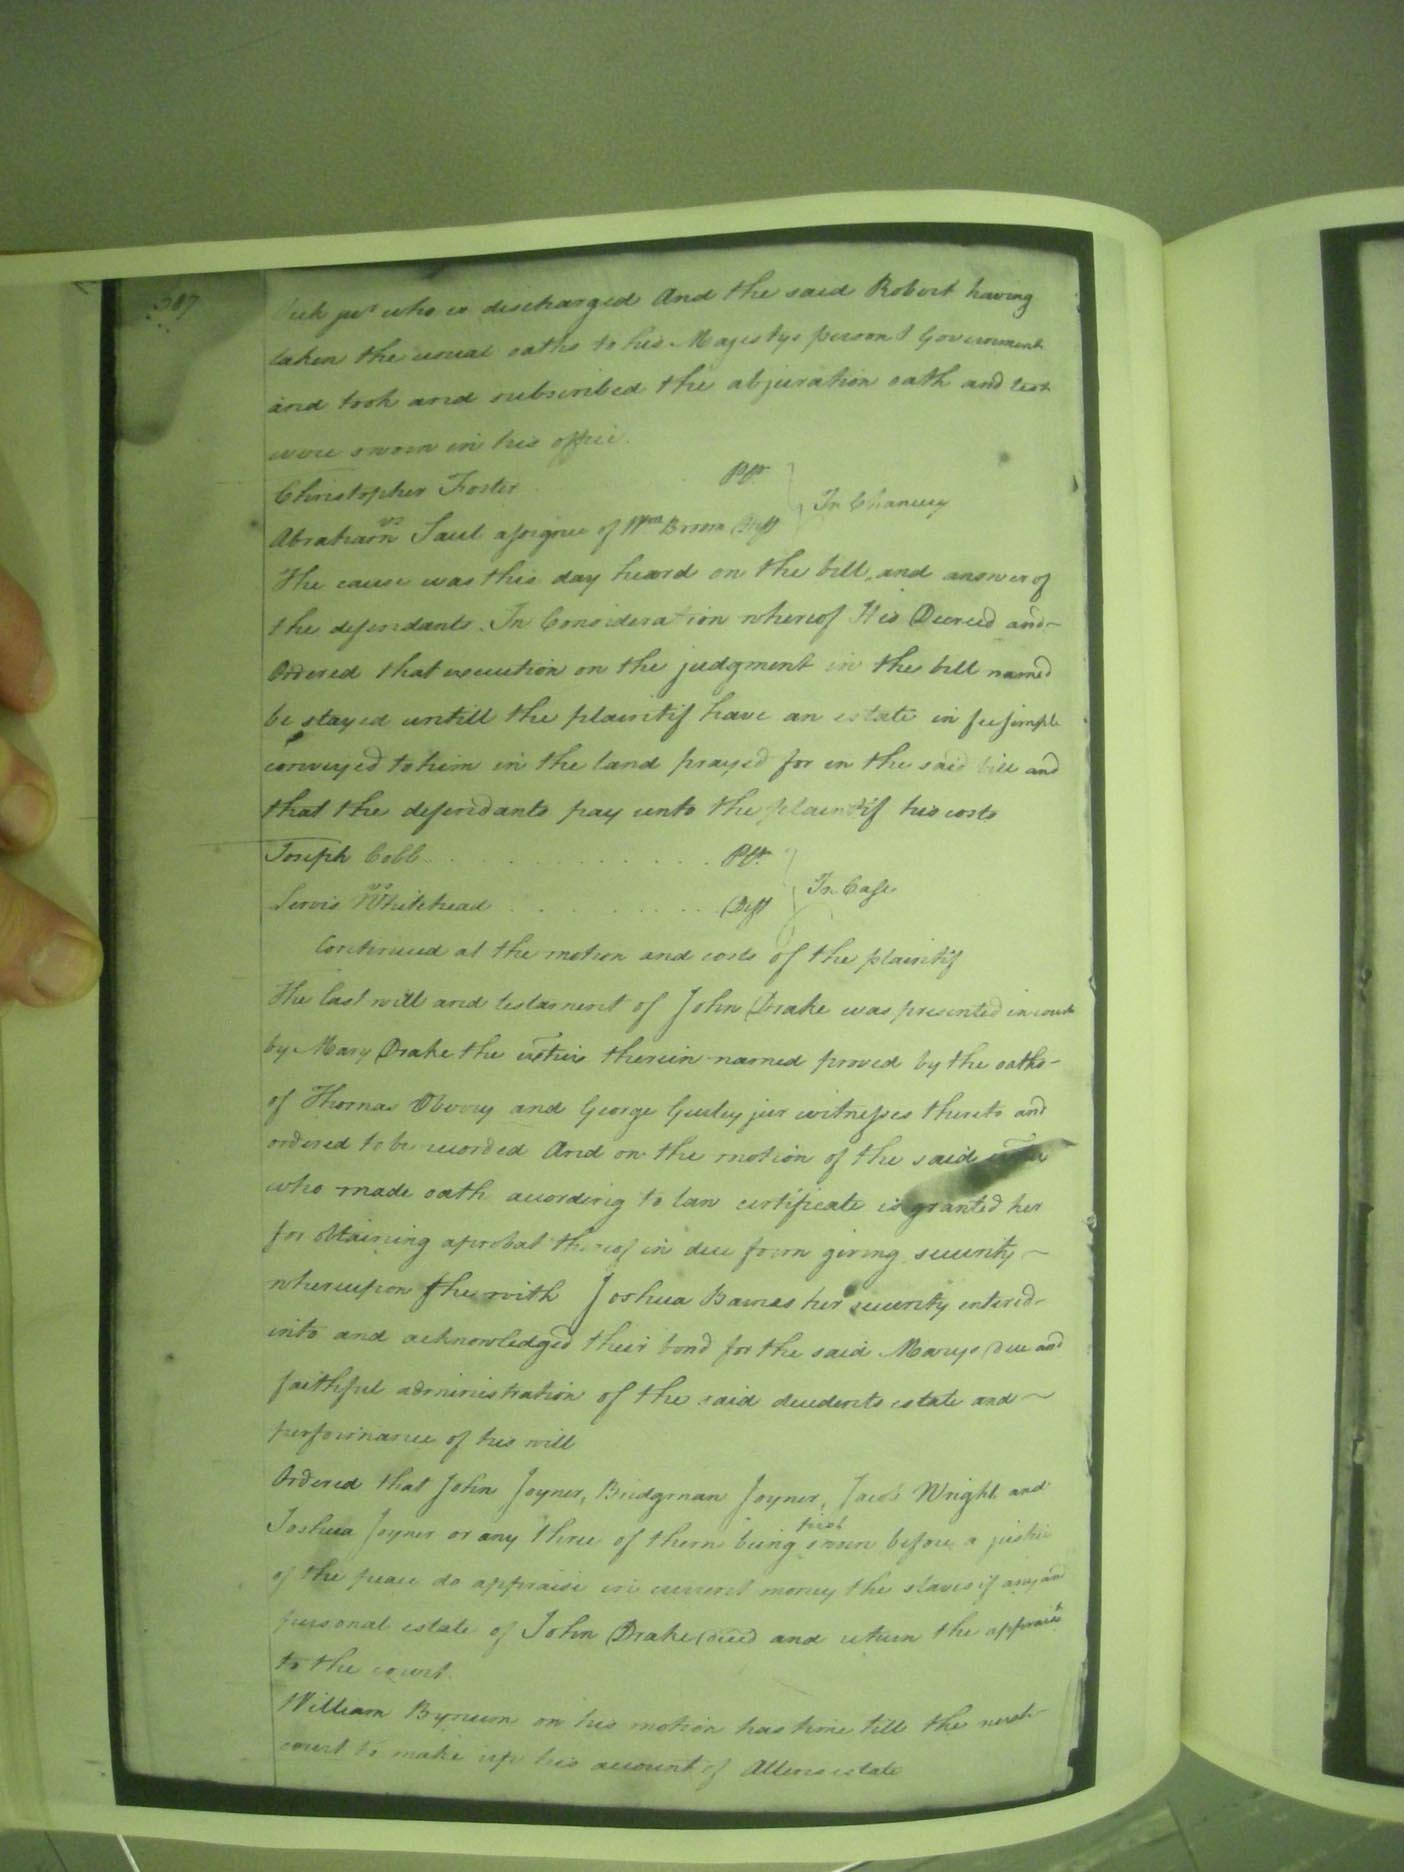 387
jur who is discharged And the said Robert having
taken the usual oaths to his Majestys person & Government
and took and subscribed the abjuration oath and test
were sworn in his office.
Christopher Foster Plt
vs
In Chancery
Abraham Saul assignee of Wm Broom Deft
The cause was this day heard on the bill, and answer of
the defendants. In Consideration whereof It is Decreed and
Ordered that execution on the judgment in the bill named
be stayed untill the plaintif have an estate in fee simple
conveyed to him in the land prayed for in the said bill and
that the defendants pay unto the plaintif his costs
Joseph Cobb Plt
vs
In Case
Whitehead Deft
Continued at the motion and costs of the plaintif
The last will and testament of John Drake was presented in court
by Mary Drake the extrix therein named proved by the oaths
of Thomas Oberry and George Gurley jur witnesses thereto and
ordered to be recorded And on the motion of the said
who made oath according to law certificate is granted her
for obtaining a probat thereof in due form giving security
whereupon she with Joshua Barnes her security entered
into and acknowledged their bond for the said Marys due and
faithful administration of the said decedents estate and
performance of his will
Ordered that John Joyner, Bridgman Joyner, Jacob Wright and
Joshua Joyner or any three of them being first sworn before a justice
of the peace do appraise in current money the slaves if any and
personal estate of John Drake decd and return the appraismt
to the court.
William Bynum on his motion has time till the next
court to make up his account of Allens estate